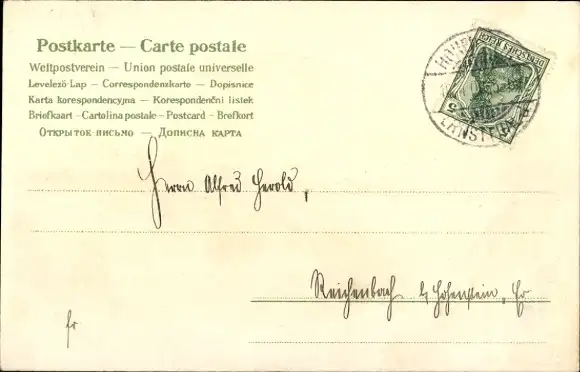 Postkarte — Carte postale
Weltpostverein — Union postale universelle
Levelező-Lap — Correspondenzkarte — Dopisnice
Karta korespondencyjna — Korespondenční listek
Briefkaart - Cartolina postale - Postcard - Brefkort
Открытое письмо — Дописна карта
DEUTSCHES REICH
Herrn Alfred Herold,
Reichenbach b/ Hohenstein, Er
fr